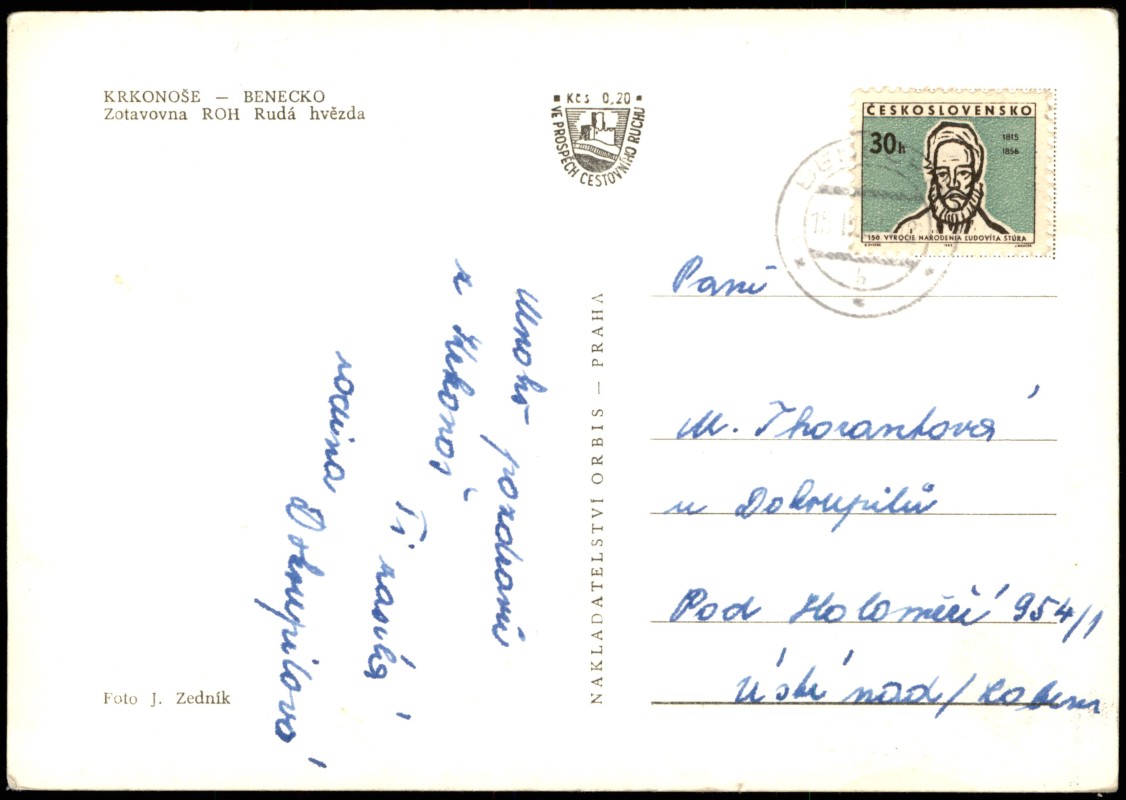 KRKONOŠE — BENECKO
Zotavovna ROH Rudá hvězda
Kčs 0,20
VE PROSPĚCH CESTOVNÍHO RUCHU
ČESKOSLOVENSKO
30h
1815
1856
150. VÝROČIE NARODENIA ĽUDOVÍTA ŠTÚRA
Mnoho pozdravů
z Krkonoš
Ti zasílá
rodina
Dokoupilová
NAKLADATELSTVÍ ORBIS — PRAHA
Paní
M. Thorantová
u Dokoupilů
Pod Holoměří 954/1
Ústí nad/Labem
Foto J. Zedník